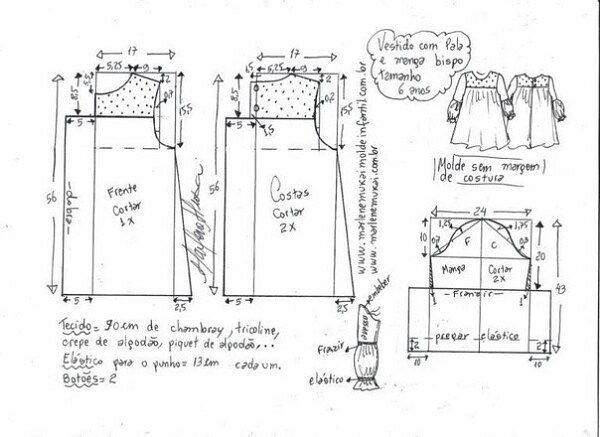 Vestido com Pala
e manga bispo
tamanho
6 anos
17
5,25
9
2
5,5
8,5
0,7
15,5
5
56
dobra
Frente
Cortar
1x
5
2,5
17
6,5
5,25
9
2
8,5
0,2
15,5
5
1,5
56
Costas
Cortar
2x
5
2,5
www.marlenemukaimoldeinfantil.com.br
www.marlenemukai.com.br
Molde sem margem
de costura
24
1,25
1,75
10
0,7
F
C
0,8
20
43
Manga
Cortar
2x
1
Franzir
1
pregar elástico
2
2
10
10
embeber
Franzir
elástico
Tecido= 90cm de chambray, tricoline,
crepe de algodão, piquet de algodão,...
Elástico para o punho=13cm cada um.
Botões=2